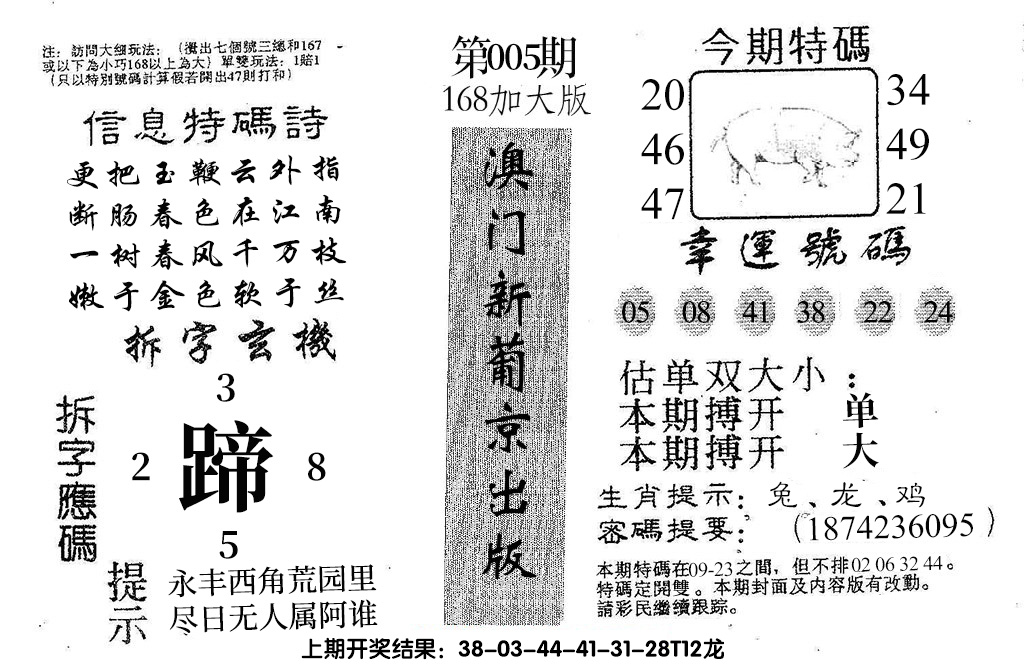 注：訪問大细玩法：（攪出七個號三總和167
或以下為小巧168以上為大）單雙玩法：1賠1
（只以特別號碼計算假若開出47則打和）
信息特碼詩
更把玉鞭云外指
断肠春色在江南
一树春风千万枝
嫩于金色软于丝
拆字玄機
拆字應碼
3
2 蹄 8
5
提示
永丰西角荒园里
尽日无人属阿谁
第005期
168加大版
澳门新葡京出版
今期特碼
20 34
46 49
47 21
幸運號碼
05 08 41 38 22 24
估单双大小：
本期搏开 单
本期搏开 大
生肖提示：兔、龙、鸡
密碼提要：（1874236095）
本期特碼在09-23之間，但不排02 06 32 44。
特碼定開雙。本期封面及内容版有改動。
請彩民繼續跟踪。
上期开奖结果：38-03-44-41-31-28T12龙